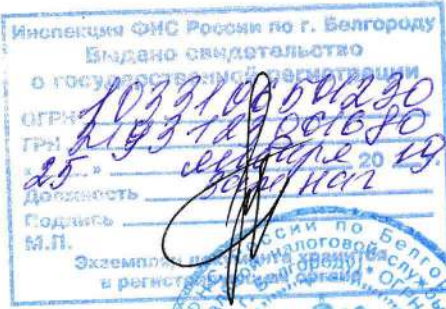 Инспекция ФНС России по г. Белгороду
Выдано свидетельство
о государственной регистрации
ОГРН 1033106501230
ГРН 2193123061680
« 25 » января 20 19
Должность зам нач
Подпись
М.П.
Экземпляр документа хранится
в регистрирующем органе